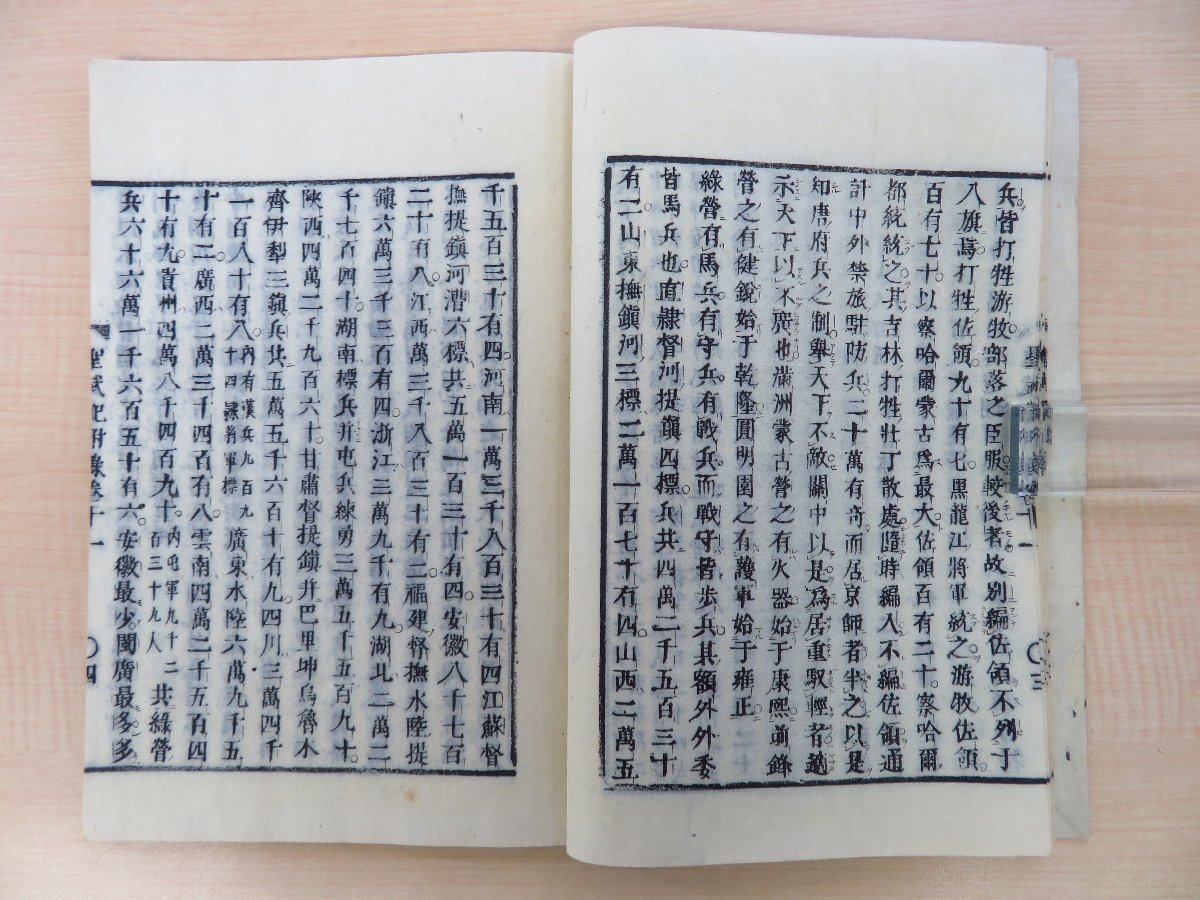 兵皆打牲游牧部落之臣服較後者故別編佐領不列于
八旗爲打牲佐領九十有七黑龍江將軍統之游牧佐領
百有七十以察哈爾蒙古爲最大佐領百有二十察哈爾
都統統之其吉林打牲壯丁散處隨時編入不編佐領通
計中外禁旅駐防兵二十萬有奇而居京師者半之以是
知唐府兵之制舉天下不敵關中以是爲居重馭輕者適
示天下以不廣也滿洲蒙古營之有火器始于康熙前鋒
營之有健銳始于乾隆圓明園之有護軍始于雍正
綠營有馬兵有守兵有戰兵而戰守皆步兵其額外外委
皆馬兵也直隸督河提鎭四標兵共四萬二千五百三十
有二山東撫鎭河三標二萬一百七十有四山西二萬五
千五百三十有四河南一萬三千八百三十有四江蘇督
撫提鎭河漕六標共五萬一百三十有四安徽八千七百
二十有八江西萬三千八百三十有二福建督撫水陸提
鎭六萬三千三百有四浙江三萬九千有九湖北二萬二
千七百四十湖南標兵并屯兵練勇三萬五千五百九十
陝西四萬二千九百六十甘肅督提鎭并巴里坤烏魯木
齊伊犁三鎭兵共五萬五千六百十有九四川三萬四千
一百八十有八內有漢兵九百九十四隸將軍標廣東水陸六萬九千五
十有二廣西二萬三千四百有八雲南四萬二千五百四
十有九貴州四萬八千四百九十內屯軍九千二百三十九人共綠營
兵六十六萬一千六百五十有六安徽最少閩廣最多多
聖武記附錄卷十一
四